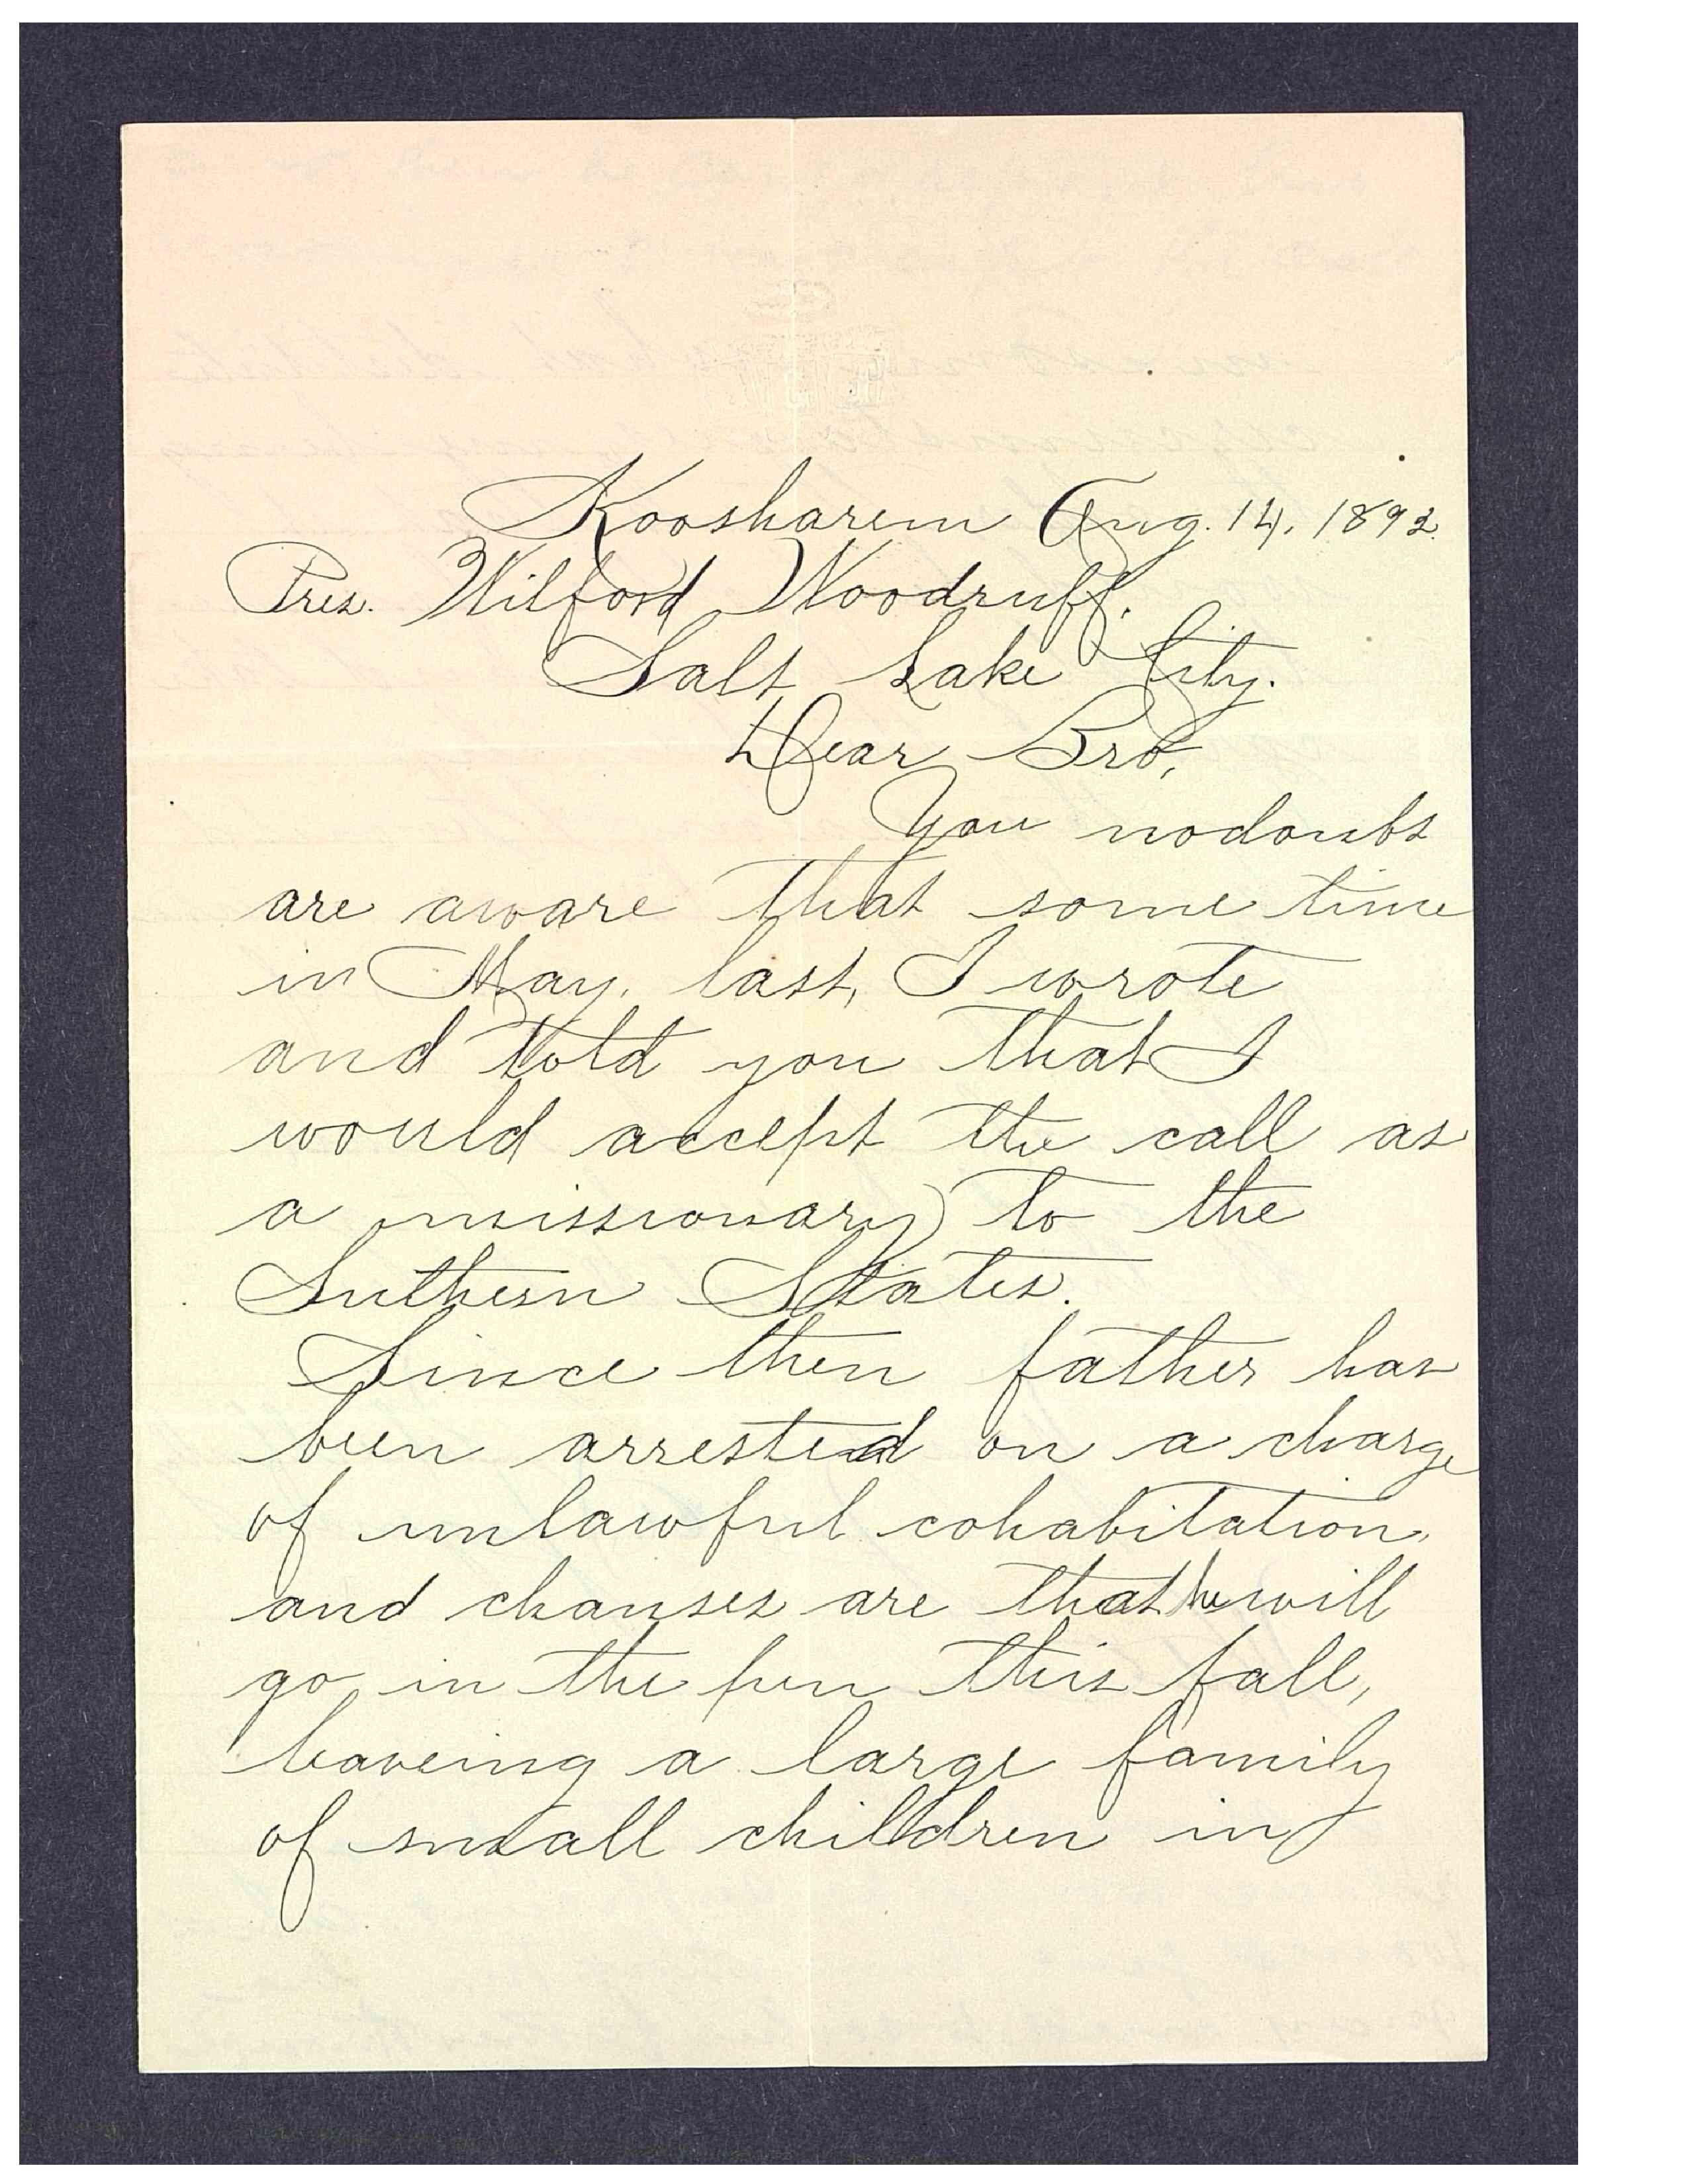 Koosharem Aug. 14, 1892.
Pres. Wilford Woodruff.
Salt Lake City.
Dear Bro,
You nodoubt
are aware that some time
in May, last, I wrote
and told you that I
would accept the call as
a missionary to the
Suthern States.
Since then father has
been arrested on a charge
of unlawful cohabitation,
and chanses are that he will
go in the pen this fall,
leaveing a large family
of small children in